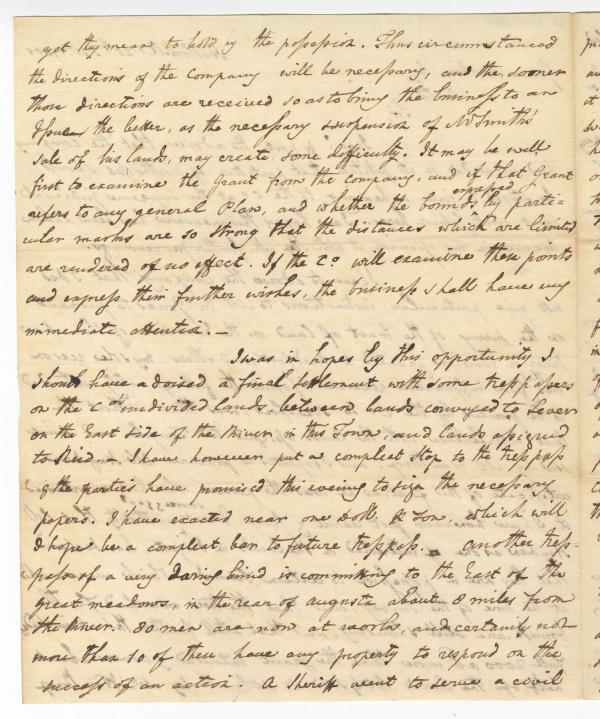 yet they mean to hold by the possession. Thus circumstanced
the directions of the Company will be necessary, and the sooner
those directions are received so as to bring the business to an
Issue, the better, as the necessary suspension of Mr Smiths'
sale of his lands, may create some difficulty. It may be well
first to examine the Grant from the Company, and if that Grant
refers to any general Plan, and whether the bounds expressed by parti-
cular marks are so strong that the distances which are limited
are rendered of no effect. If the Co. will examine these points
and express their further wishes, the business shall have my
immediate attention. —
I was in hopes by this opportunity I
should have advised a final settlement with some trespassers
on the Coys undivided Lands, between lands conveyed to
on the East side of the River in this Town, and lands assigned
to Reed. — I have however put a compleat stop to the trespass
& the parties have promised this evening to sign the necessary
papers. I have exacted near one doll. & Ton, which will
I hope be a compleat bar to future trespass. — another tres-
pass of a very daring kind is committing to the East of the
great meadows, in the rear of augusta about 8 miles from
the River. 80 men are now at work, and certainly not
more than 10 of them have any property to respond on the
success of an action. A Sheriff went to serve a civil